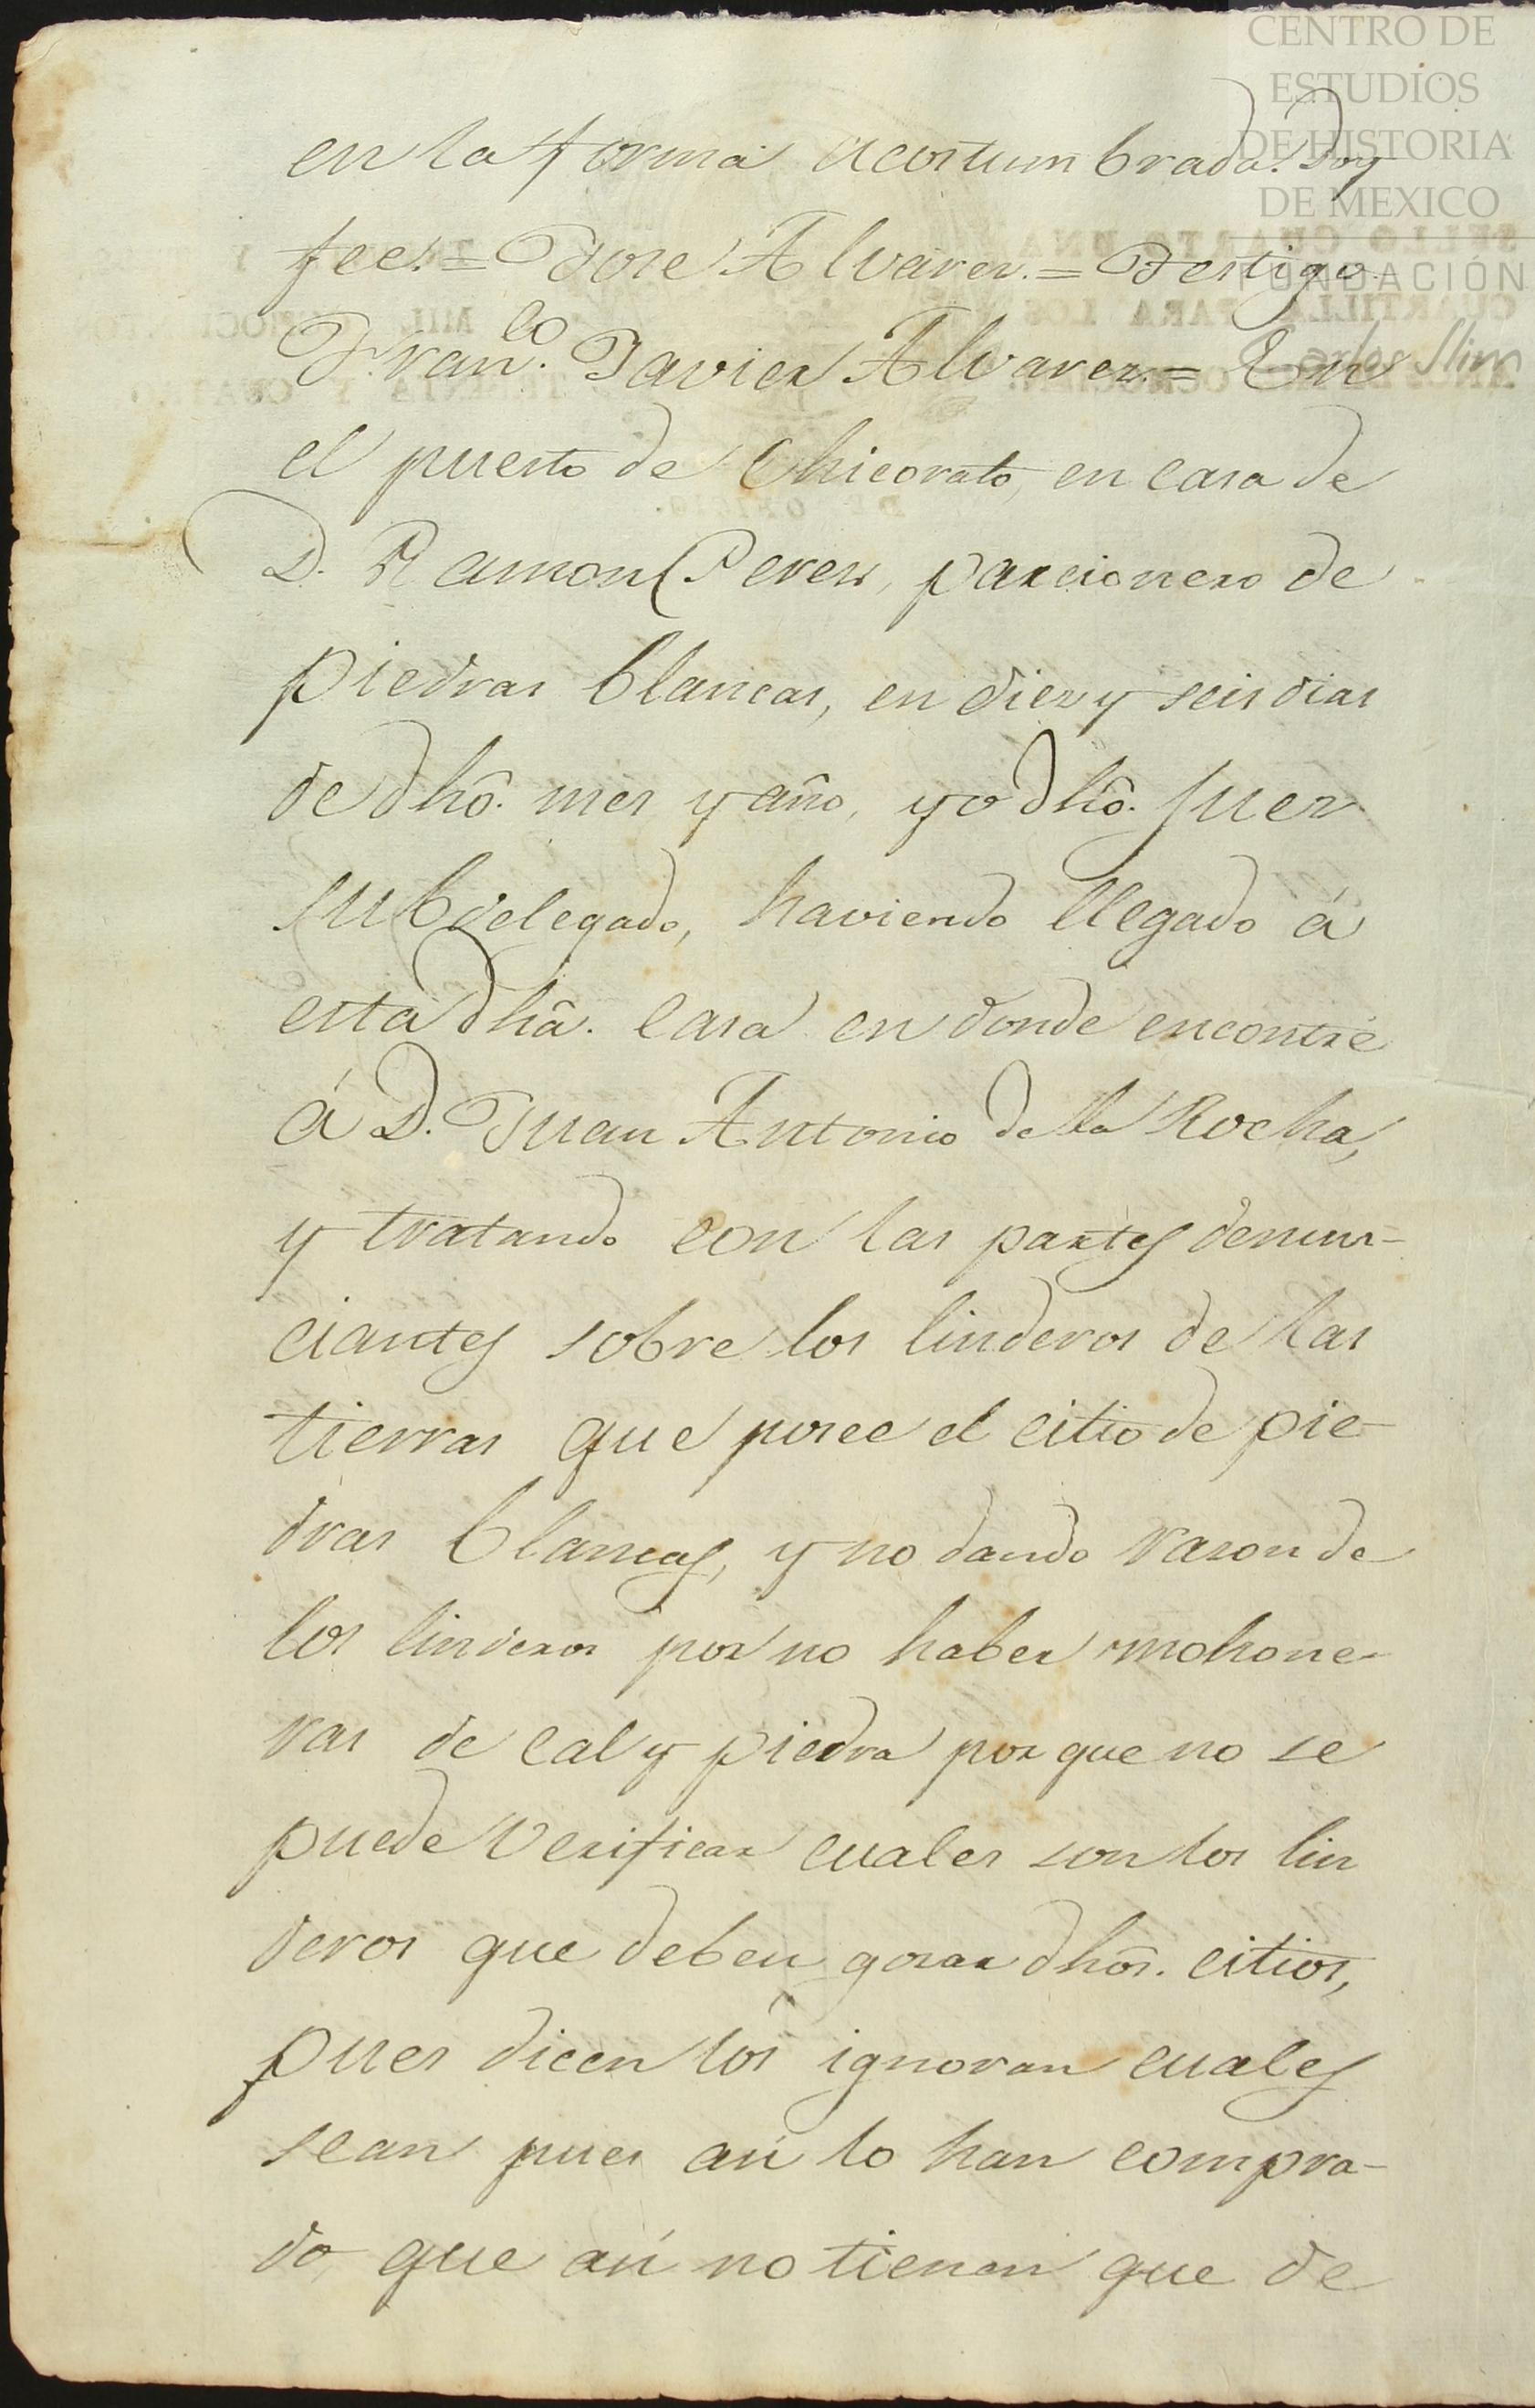 CENTRO DE
ESTUDIOS
DE HISTORIA
DE MEXICO
FUNDACIÓN
Carlos Slim
en la forma acostumbrada. Doy
fee. = Jose Alvares. = Testigo.
Fran.co Javier Alvarez. = En
el puesto de Chicorato, en casa de
D. Ramon Peres, parcionero de
piedras blancas, en diez y seis dias
de dhô. mes y año, yo dhô. Juez
subdelegado, haviendo llegado á
esta dhâ. casa en donde encontré
á D. Juan Antonio de la Rocha,
y tratando con las partes denun-
ciantes sobre los linderos de las
tierras que posee el citio de pie-
dras blancas, y no dando rason de
los linderos por no haber mohone-
ras de cal y piedra por que no se
puede verificar cuales son los lin
deros que deben gosar dhôs. citios,
pues dicen los ignoran cuales
sean pues asi lo han compra-
do, que asi no tienen que de